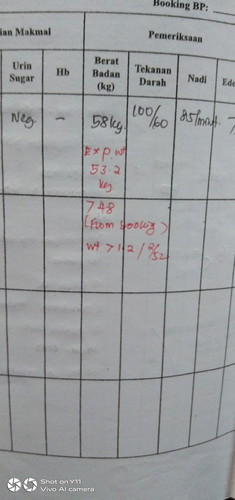 Booking BP:
ian Makmal
Pemeriksaan
Urin Sugar
Hb
Berat Badan (kg)
Tekanan Darah
Nadi
Ede
Neg
-
58kg.
100/60
85/min
Exp wt
53.2
kg
(From booking)
wt > 1.2 / 2/52
Shot on Y11
Vivo AI camera